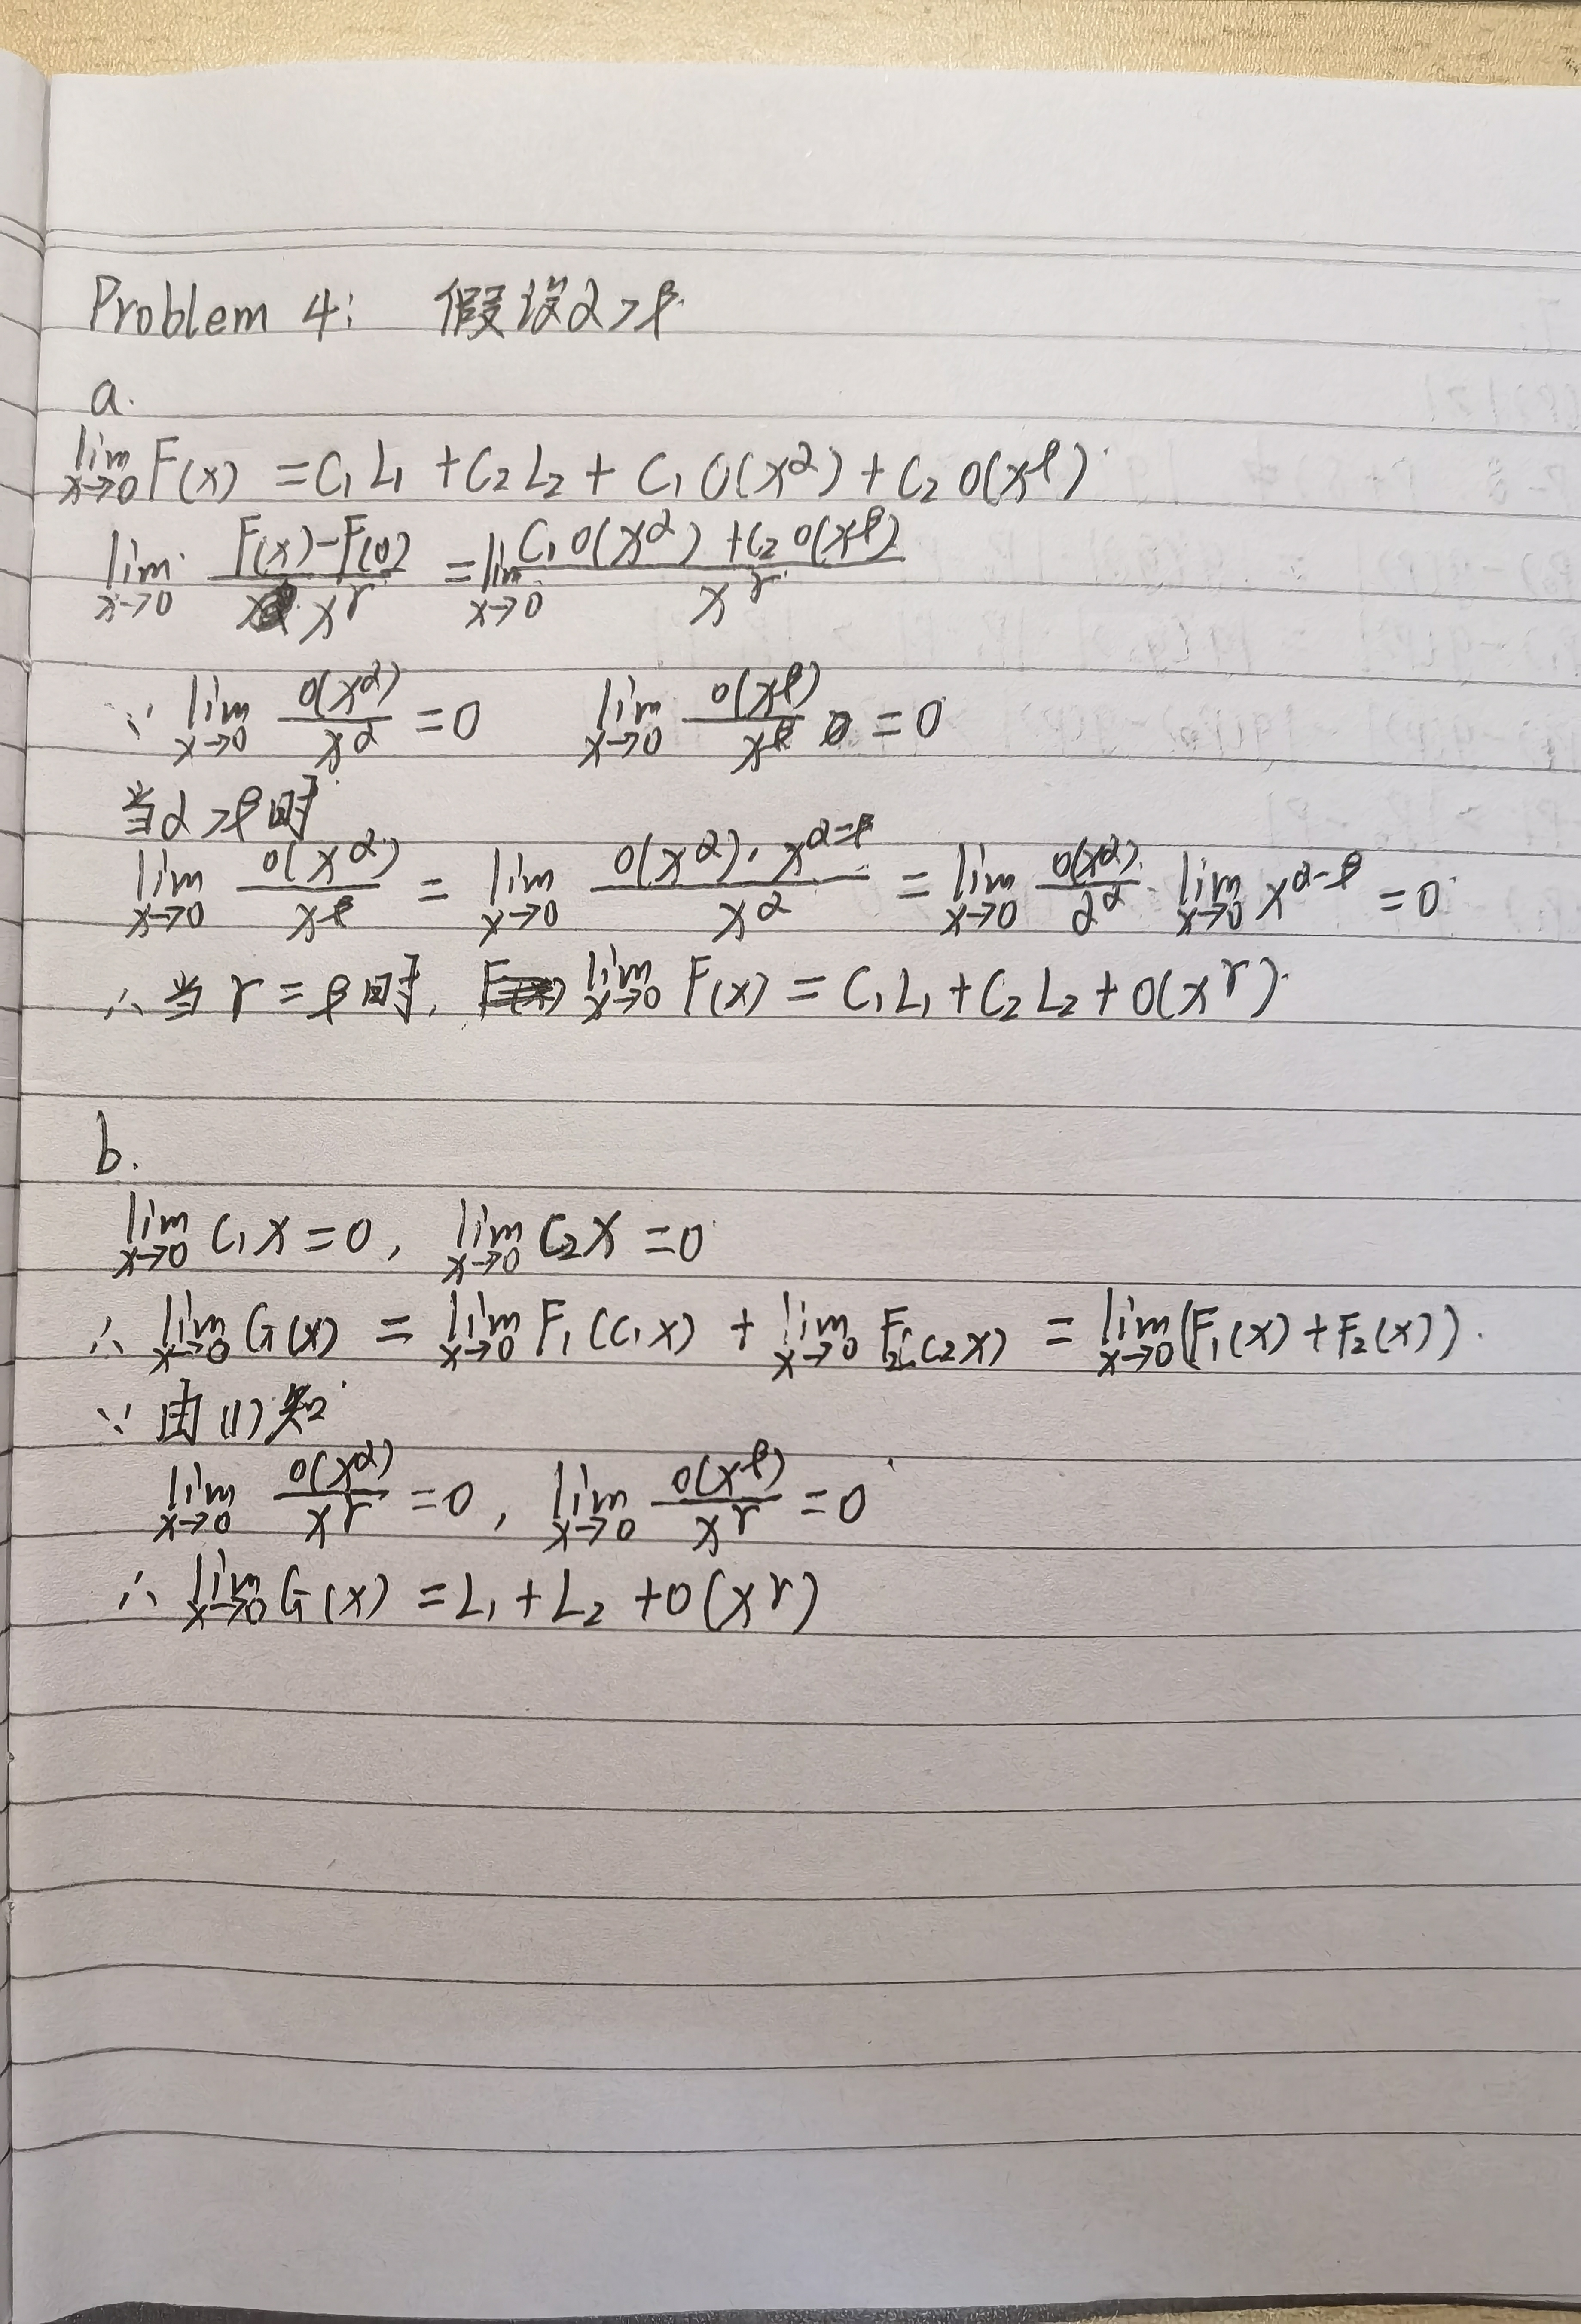 Problem 4: 假设α>β.
a.
lim x→0 F(x) = C₁L₁ + C₂L₂ + C₁O(x^α) + C₂O(x^β)
lim x→0 (F(x)-F(0))/x^r = lim x→0 (C₁O(x^α) + C₂O(x^β))/x^r
∵ lim x→0 O(x^α)/x^α = 0 lim x→0 O(x^β)/x^β = 0
当α>β时
lim x→0 O(x^α)/x^β = lim x→0 O(x^α)·x^(α-β)/x^α = lim x→0 O(x^α)/2^α · lim x→0 x^(α-β) = 0
∴ 当r=β时, lim x→0 F(x) = C₁L₁ + C₂L₂ + O(x^r).
b.
lim x→0 C₁x = 0, lim x→0 C₂x = 0
∴ lim x→0 G(x) = lim x→0 F₁(C₁x) + lim x→0 F₂(C₂x) = lim x→0 (F₁(x)+F₂(x)).
∵ 由(1)知
lim x→0 O(x^α)/x^r = 0, lim x→0 O(x^β)/x^r = 0
∴ lim x→0 G(x) = L₁ + L₂ + O(x^r)